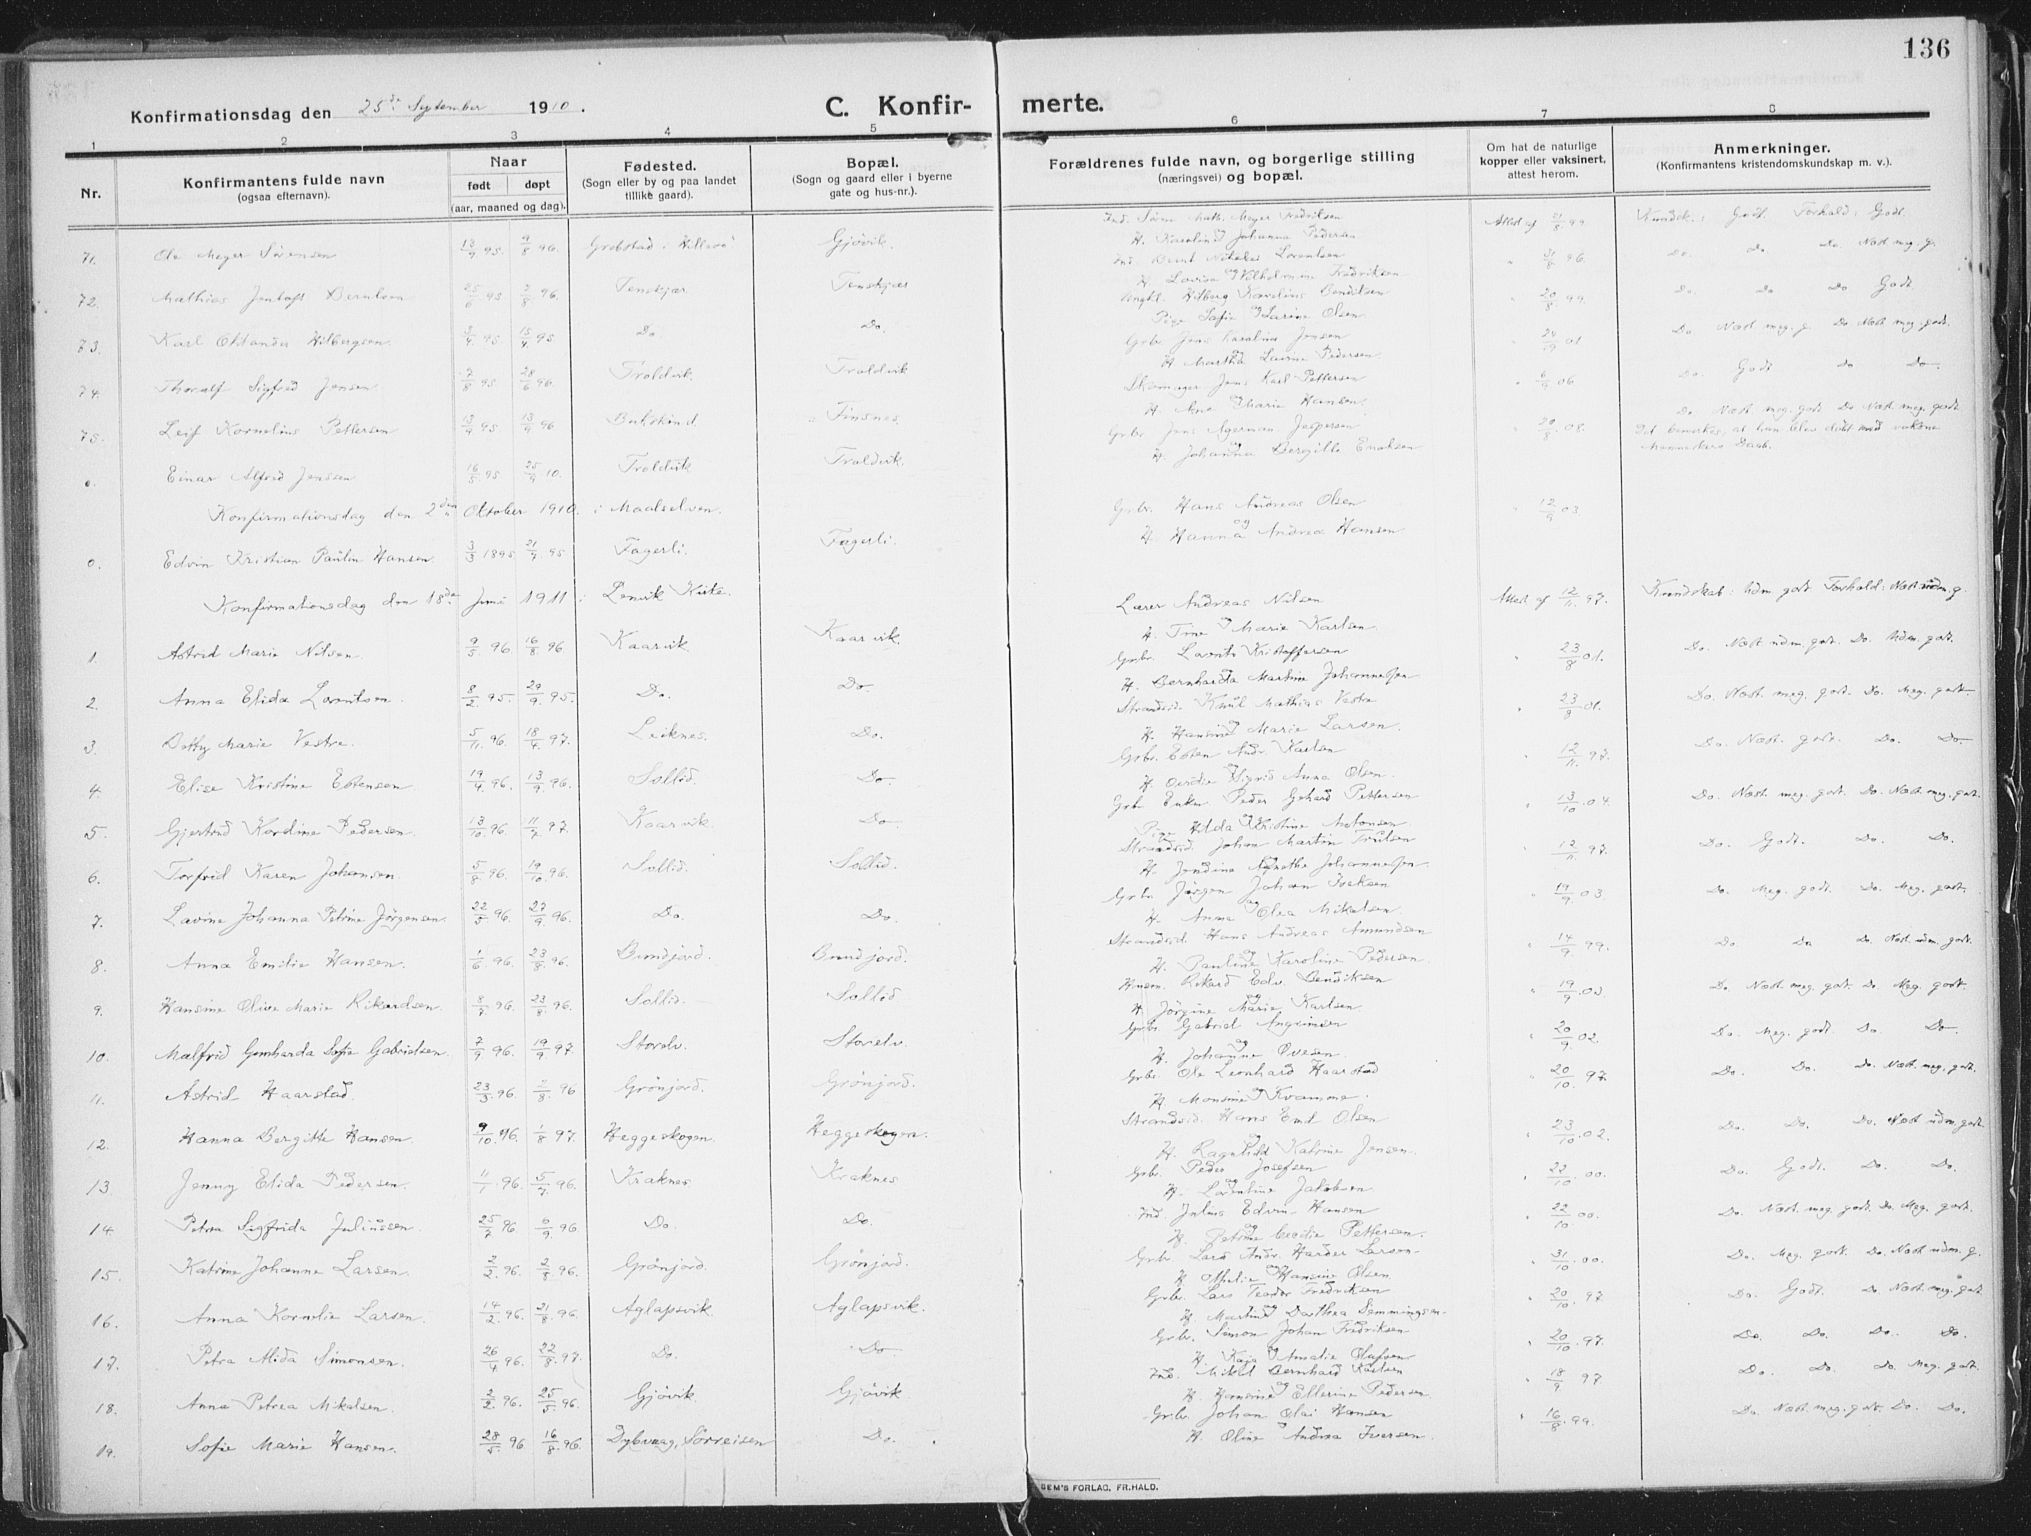 136
Konfirmationsdag den 25de September 1910.
C. Konfirmerte.
1 2 3 4 5 6 7 8
Nr.
Konfirmantens fulde navn
(ogsaa efternavn).
Naar
født døpt
(aar, maaned og dag).
Fødested.
(Sogn eller by og paa landet
tillike gaard).
Bopæl.
(Sogn og gaard eller i byerne
gate og hus-nr.).
Forældrenes fulde navn, og borgerlige stilling
(næringsvei) og bopæl.
Om hat de naturlige
kopper eller vaksinert.
attest herom.
Anmerkninger.
(Konfirmantens kristendomskundskap m. v.).
71. Ole Meyer Sörensen 13/9 95 9/8 96. Gjövik. Ind. Sören Math. Meyer Fredriksen Attest af 31/8 99 Kundsk.: Godt. Forhold: Godt.
H. Karoline Johanna Pedersen
72. Mathias Jentoft Berntsen 2/8 96. Tenskjær Tenskjær Ind. Bernt Nikolai Lorentsen 31/8 96. Do. Do Do. Næst meg. g.
H. Lovise Vilhelmine Fredriksen
73. Karl Oktander Hilbergsen 95 Do Do. Ungkl. Hilberg Karelius Bendiksen 20/8 99 Do Do Do Godt
Pige Sofie Marine Olsen
74. Thoralf Sigfred Jensen 7/8 95 28/6 96. Troldvik Troldvik Grbr. Jens Karolius Jensen 01 Do Næst meg. g. Do Næst meg. godt.
H. Martha Lavine Pedersen
75. Leif Kornelius Pettersen 13/9 95 96 Bukskind Finsnes. Skomager Jens Karl Pettersen 6/9 06 Do. Godt Do Do
H. Ane Marie Hansen.
0. Einar Alfred Jenssen 16/5 95 25/9 10. Troldvik Troldvik. Grbr. Jens Agerman Jespersen 20/8 08. Do Næst meg. godt Do Næst. meg. godt
H. Johanna Bergitte Enoksen Det bemerkes, at han blev døbt med voksne
Menneskers Daab.
Konfirmationsdag den 2den Oktober 1910. i Maalselven.
0. Edvin Kristian Paulin Hansen. 3/3 1895 21/7 95 Fagerli. Fagerli. Grbr. Hans Andreas Olsen 12/9 03
H. Hanna og Andrea Hansen
Konfirmationsdag den 18de Juni 1911 i Lenvik Kirke.
1. Astrid Marie Nilsen. 9/5 96 16/8 96 Kaarvik. Kaarvik. Lærer Andreas Nilsen Attest af 12/11 97. Kundskab: Udm. godt. Forhold: Næst udm. g.
H. Tine Marie Karlsen.
2. Anna Elida Lorentsen. 8/2 95. 29/9 95. Do. Do. Grbr. Lorents Kristoffersen 23/8 01. Do. Næst udm. godt. Do. Udm. godt.
H. Bernharda Martine Johannessen
3. Dotty Marie Vestre. 5/11 96. 18/4 97. Leiknes. Do. Strandsid. Knut Mathias Vestre 23/8 01. Do. Næst meg. godt. Do. Meg. godt
H. Hansine Marie Larsen.
4. Elise Kristine Estensen 19/4 96. 13/9 96. Sollid. Do. Grbr. Esten Andr. Karlsen 12/11 97. Do. Næst. godt. Do. Do.
H. Ovidie Sigrid Anna Olsen.
5. Gjertrud Kordine Pedersen. 13/10 96. 11/7 97. Kaarvik. Do Grb. Enkm. Peder Gehard Pettersen 13/10 04. Do. Næst. meg. godt. Do. Næst. meg. godt.
Pige Hilda Kristine Antonsen
6. Torfrid Karen Johansen 5/8 96. 19/10 96. Sollid. Sollid. Strandsid. Johan Martin Trulsen 12/11 97. Do. Godt. Do. Do.
H. Jendine Agnethe Johannessen.
7. Lavine Johanna Petrine Jörgensen. 22/5 96. 27/9 96. Do. Do. Grbr. Jörgen Johan Isaksen 19/9 03 Do. Meg. godt. Do. Meg. godt.
H. Anna Olea Mikalsen.
8. Anna Emilie Hansen. 1/6 96. 23/8 96. Bundjord. Bundjord. Strandsid. Hans Andreas Amundsen 14/9 99. Do Do Do. Næst udm. godt.
H. Pauline Karoline Pedersen.
9. Hansine Olive Marie Rikardsen. 8/7 96. 23/8 96. Sollid. Sollid Husm. Rikard Edv. Bendiksen 19/9 03 Do Næst meg. godt. Do. Meg. godt.
H. Jörgine Marie Karlsen
10. Malfrid Gunharda Sofie Gabrielsen. 7/9 96. 19/9 97. Storelv. Storelv Grbr. Gabriel Angrimsen 20/9 02. Do. Meg. godt Do. Do.
H. Johanne Ovesen.
11. Astrid Haarstad. 23/3 96. 2/8 96 Grönjord. Grönjord. Grbr. Ole Leonhard Haarstad 20/10 97. Do. Do. Do. Næst. meg. godt.
H. Monsine Kvamme.
12. Hanna Bergitte Hansen. 9/10 96. 1/8 97. Heggeskogen. Heggeskogen. Strandsid. Hans Emil Olsen 23/10 02. Do. Do. Do. Næst udm. godt.
H. Ragnhild Katrine Jensen.
13 Jenny Elida Pedersen. 11/1 96. 5/7 96. Kraknes Kraknes Grbr. Peder Josefsen 22/10 00. Do. Godt. Do. Do.
H. Lorentine Jakobsen
14. Petra Sigfrida Juliussen. 25/7 96 6/9 96 Do. Do. Ind. Julius Edvin Hansen 22/10 00. Do. Næst. meg. godt. Do. Meg. godt.
H. Petrine Cecilie Pettersen.
15. Katrine Johanne Larsen. 2/2 96. 2/8 96. Grönjord. Grönjord. Grbr. Lars Andr. Harder Larsen 31/10 00. Do. Meg. godt. Do. Næst udm. g.
H. Othelie Hansine Olsen
16. Anna Kornelie Larsen. 14/2 96. 21/8 96. Aglapsvik. Aglapsvik. Grbr. Lars Teodor Fredriksen 20/10 97 Do. Godt. Do. Næst. meg. godt
H. Martine Dorthea Demmingsen.
17. Petra Alida Simonsen. 26/4 96. 22/8 97. Do. Do Grbr. Simon Johan Fredriksen 20/10 97. Do. Do. Do. Do.
H. Kaja Amalie Olafsen
18. Anna Petrea Mikalsen. 2/2 96. 25/5 96. Gjövik Gjövik Ind. Mikal Bernhard Karlsen 18/9 97 Do. Do. Do. Meg. godt.
H. Hansine Ellerine Pedersen
19. Sofie Marie Hansen. 28/5 96 16/8 96. Dybvaag, Sörreisen Do. Grbr. Johan Olai Hansen 16/8 99. Do Næst. meg. godt. Do. Do.
H. Oline Andrea Iversen.
SEM'S FORLAG, FR.HALD.